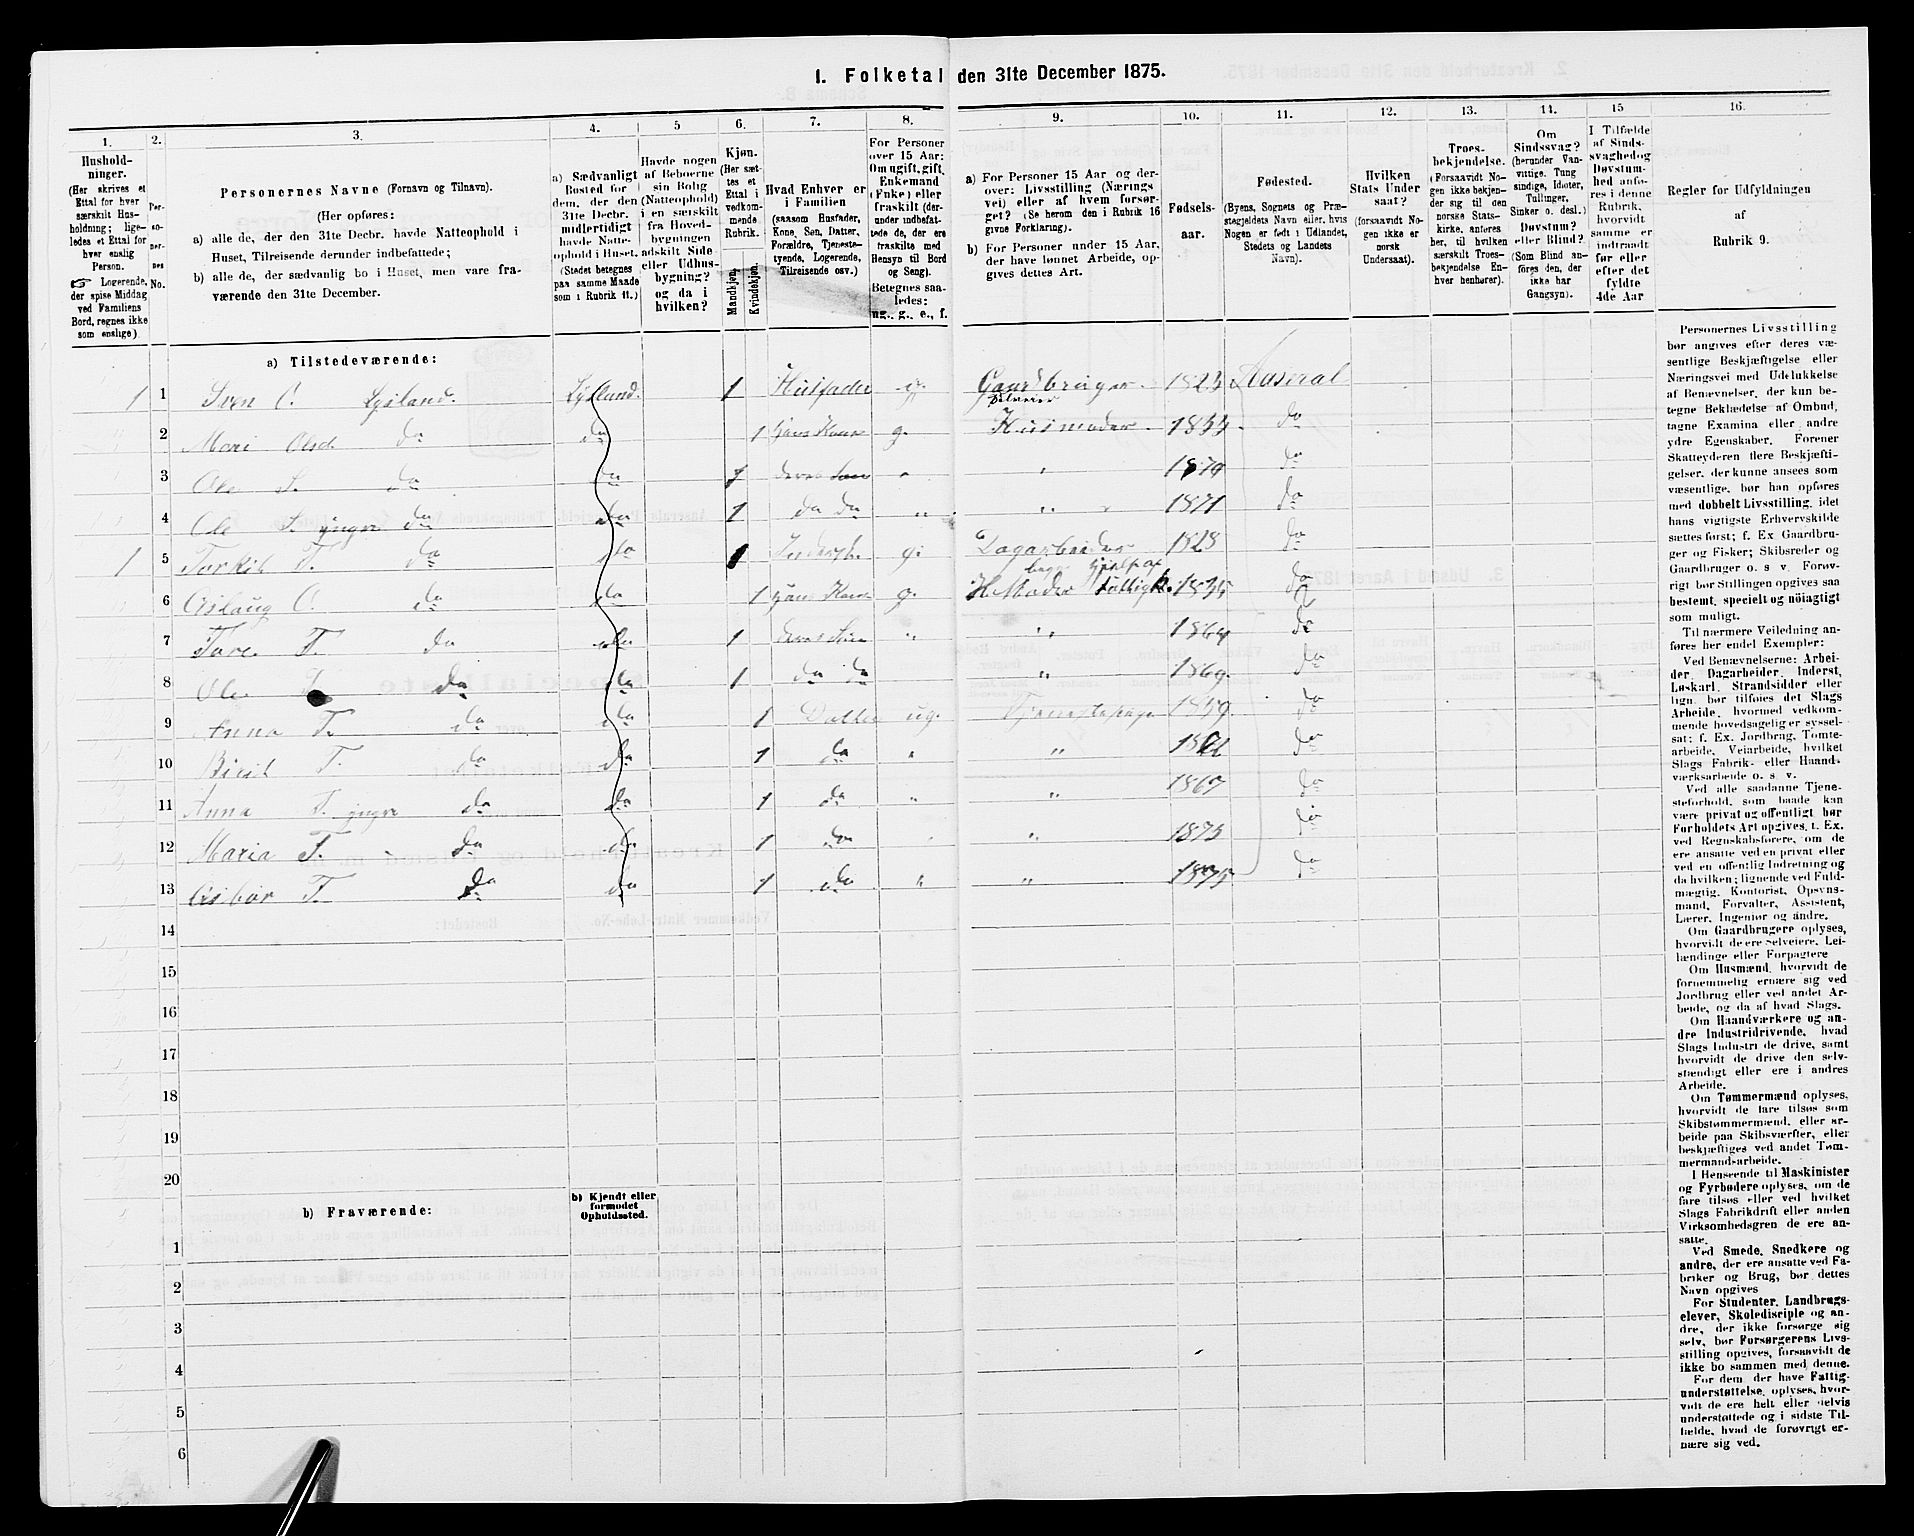 1. Folketal den 31te December 1875.
1. 2. 3. 4. 5 6. 7. 8. 9. 10. 11. 12. 13. 14. 15 16.
Hushold-
ninger.
(Her skrives et
Ettal for hver
særskilt Hus-
holdning; lige-
ledes et Ettal for
hver enslig
Person.
☞ Logerende,
der spise Middag
ved Familiens
Bord, regnes ikke
som enslige)
Per-
so-
ner-
nes
No.
Personernes Navne (Fornavn og Tilnavn).
(Her opføres:
a) alle de, der den 31te Decbr. havde Natteophold i
Huset, Tilreisende derunder indbefattede;
b) alle de, der sædvanlig bo i Huset, men vare fra-
værende den 31te December.
a) Sædvanligt
Bosted for
dem, der den
31te Decbr.
midlertidigt
havde Natte-
ophold i Huset.
(Stedet betegnes
paa samme Maade
som i Rubrik 11.)
Havde nogen
af Beboerne
sin Bolig
(Natteophold)
i en særskilt
fra Hoved-
bygningen
adskilt Side-
eller Udhus-
bygning?
og da i
hvilken?
Kjøn.
(Her sæt-
tes et
Ettal i
vedkom-
mende
Rubrik.
Mandkjøn.
Kvindekjøn.
Hvad Enhver er
i Familien
(saasom Husfader,
Kone, Søn, Datter,
Forældre, Tjeneste-
tyende, Logerende,
Tilreisende osv.)
For Personer
over 15 Aar:
Om ugift, gift,
Enkemand
(Enke) eller
fraskilt (der-
under indbefat-
tede de, der ere
fraskilte med
Hensyn til Bord
og Seng).
Betegnes saa-
ledes:
ug., g., e., f.
a) For Personer 15 Aar og der-
over: Livsstilling (Nærings-
vei) eller af hvem forsør-
get? (Se herom den i Rubrik 16
givne Forklaring).
b) For Personer under 15 Aar,
der have lønnet Arbeide, op-
gives dettes Art.
Fødsels-
aar.
Fødested.
(Byens, Sognets og Præ-
stegjeldets Navn eller, hvis
Nogen er født i Udlandet,
Stedets og Landets
Navn).
Hvilken
Stats Under
saat?
(forsaavidt No-
gen ikke er
norsk
Undersaat).
Troes-
bekjendelse.
(Forsaavidt No-
gen ikke bekjen-
der sig til den
norske Stats-
kirke, anføres
her, til hvilken
særskilt Troes-
bekjendelse En-
hver henhører).
Om
Sindssvag?
(herunder Van-
vittige, Tung
sindige, Idioter,
Tullinger,
Sinker o. desl.)
Døvstum?
eller Blind?
(Som Blind an-
føres den, der
ikke har
Gangsyn).
I Tilfælde
af Sinds-
svaghed og
Døvstum-
hed anfø-
res i denne
Rubrik,
hvorvidt
samme er
indtraadt
før eller
efter det
fyldte
4de Aar
Regler for Udfyldningen
af
Rubrik 9.
a) Tilstedeværende:
1 1 Sven O. Lysland. Lysland. 1 Husfader g. Gaardbruger 1823 Aaseral
Selveier
2 Mari Olsd. do do 1 hans Kone g. Husmoder. 1833. do
3 Ole S. do do 1 deres Søn " " 1870 do
4 Ole S. yngre do do 1 do do " " 1871 do
1 5 Torkil T. do do 1 g. Dagarbeider 1828 do
6 Aslaug O. do do 1 hans Kone g. H. Moder 1835 do
7 Tore T. do do 1 deres Søn " " 1864 do
8 Ole T. do do 1 do do " 1869. do
9 Anna T. do do 1 Datter ug. 1859. do
10 Birit T. do do 1 do " " do
11 Anna T. yngre do do 1 do " " 1867 do
12 Maria T. do do 1 do " 1873 do
13 Asbor T. do do 1 do " " 1875 do
14
15
16
17
18
19
20
b) Fraværende:
b) Kjendt eller
formodet
Opholdssted.
1
2
3
4
5
6
Personernes Livsstilling
bør angives efter deres væ-
sentlige Beskjæftigelse eller
Næringsvei med Udelukkelse
af Benævnelser, der kun be-
tegne Beklædelse af Ombud,
tagne Examina eller andre
ydre Egenskaber. Forener
Skatteyderen flere Beskjæfti-
gelser, der kunne ansees som
væsentlige, bør han opføres
med dobbelt Livsstilling, idet
hans vigtigste Erhvervskilde
sættes først; f. Ex Gaardbru-
ger og Fisker; Skibsreder og
Gaardbruger o. s. v. Forøv-
rigt bør Stillingen opgives saa
bestemt, specielt og nöiagtigt
som muligt.
Til nærmere Veiledning an-
føres her endel Exempler:
Ved Benævnelserne: Arbei-
der, Dagarbeider, Inderst,
Løskarl, Strandsidder eller
lign. bør tilføies det Slags
Arbeide, hvormed vedkom-
mende hovedsagelig er syssel-
sat; f. Ex. Jordbrug, Tomte-
arbeide, Veiarbeide, hvilket
Slags Fabrik- eller Haand-
værksarbeide o. s. v.
Ved alle saadanne Tjene-
steforhold, som baade kan
være privat og offentligt bør
Forholdets Art opgives, t. Ex.
ved Regnskabsførere, om de
ere ansatte ved en privat eller
ved en offentlig Indretning og
da hvilken; lignende ved Fuld-
mægtig, Kontorist, Opsyns-
mand, Forvalter, Assistent,
Lærer, Ingeniør og andre.
Om Gaardbrugere oplyses,
hvorvidt de ere selveiere, Lei-
lændinge eller Forpagtere
Om Husmænd, hvorvidt de
fornemmelig ernære sig ved
Jordbrug eller ved andet Ar-
beide, og da af hvad Slags.
Om Haandværkere og an-
dre Industridrivende, hvad
Slags Industri de drive, samt
hvorvidt de drive den selv-
stændigt eller ere i andres
Arbeide.
Om Tømmermænd oplyses,
hvorvidt de fare tilsøs som
Skibstømmermænd, eller ar-
beide paa Skibsværfter, eller
beskjæftiges ved andet Tøm-
mermandsarbeide.
I Henseende til Maskinister
og Fyrbødere oplyses, om de
fare tilsøs eller ved hvilket
Slags Fabrikdrift eller anden
Virksomhedsgren de ere an-
satte.
Ved Smede, Snedkere og
andre, der ere ansatte ved Fa-
briker og Brug, bør dettes
Navn opgives
For Studenter, Landbrugs-
elever, Skoledisciple og an-
dre, der ikke forsørge sig
selv, bør Forsørgerens Livs-
stilling opgives, forsaavidt de
ikke bo sammen med denne.
For dem, der have Fattig-
understøttelse, oplyses, hvor-
vidt de ere helt eller delvis
understøttede og i sidste Til-
fælde, hvad de forøvrigt er-
nære sig ved.